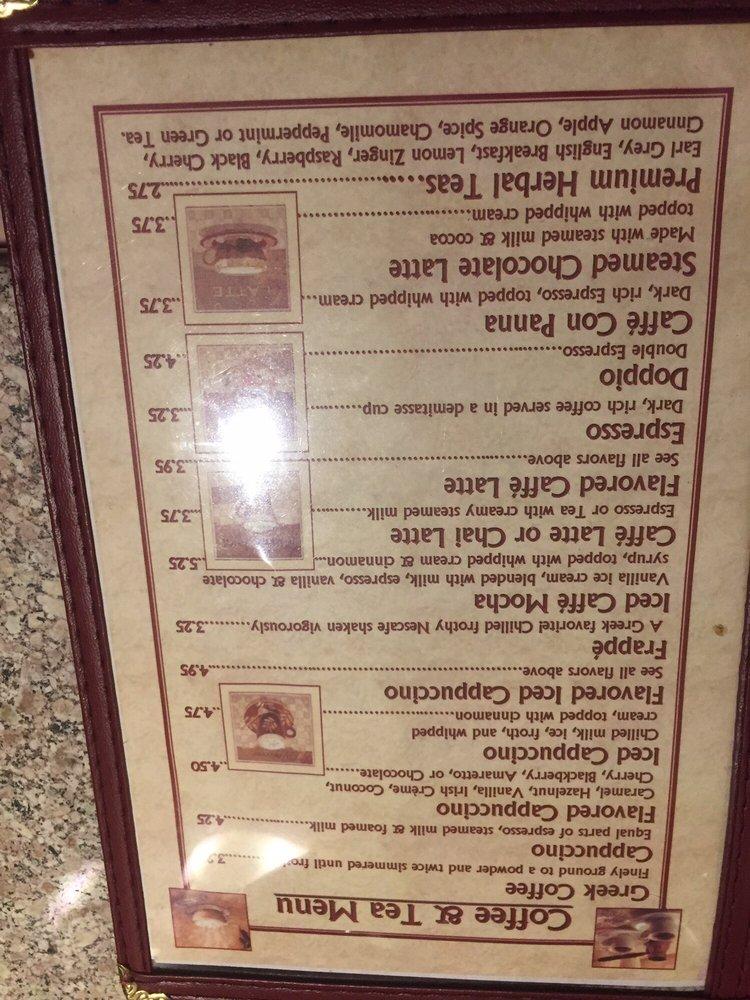 Coffee & Tea Menu
Greek Coffee
Finely ground to a powder and twice simmered until
Cappuccino
Equal parts of espresso, steamed milk & foamed milk..........4.25
Flavored Cappuccino
Caramel, Hazelnut, Vanilla, Irish Crème, Coconut,
Cherry, Blackberry, Amaretto, or Chocolate..........4.50
Iced Cappuccino
Chilled milk, ice, froth, and whipped
cream, topped with cinnamon..........4.75
Flavored Iced Cappuccino
See all flavors above..........4.95
Frappé
A Greek favorite! Chilled frothy Nescafe vigorously shaken..........3.25
Iced Caffé Mocha
Vanilla ice cream, blended with milk, espresso, vanilla & chocolate
syrup, topped with whipped cream & cinnamon..........5.25
Caffé Latte or Chai Latte
Espresso or Tea with creamy steamed milk..........3.75
Flavored Caffé Latte
See all flavors above..........3.95
Espresso
Dark, rich coffee served in a demitasse cup..........3.25
Doppio
Double Espresso..........4.25
Caffé Con Panna
Dark, rich Espresso, topped with whipped cream..........3.75
Steamed Chocolate Latte
Made with steamed milk & cocoa
topped with whipped cream..........3.75
LATTE
Premium Herbal Teas..........2.75
Earl Grey, English Breakfast, Lemon Zinger, Raspberry, Black Cherry,
Cinnamon Apple, Orange Spice, Chamomile, Peppermint or Green Tea.